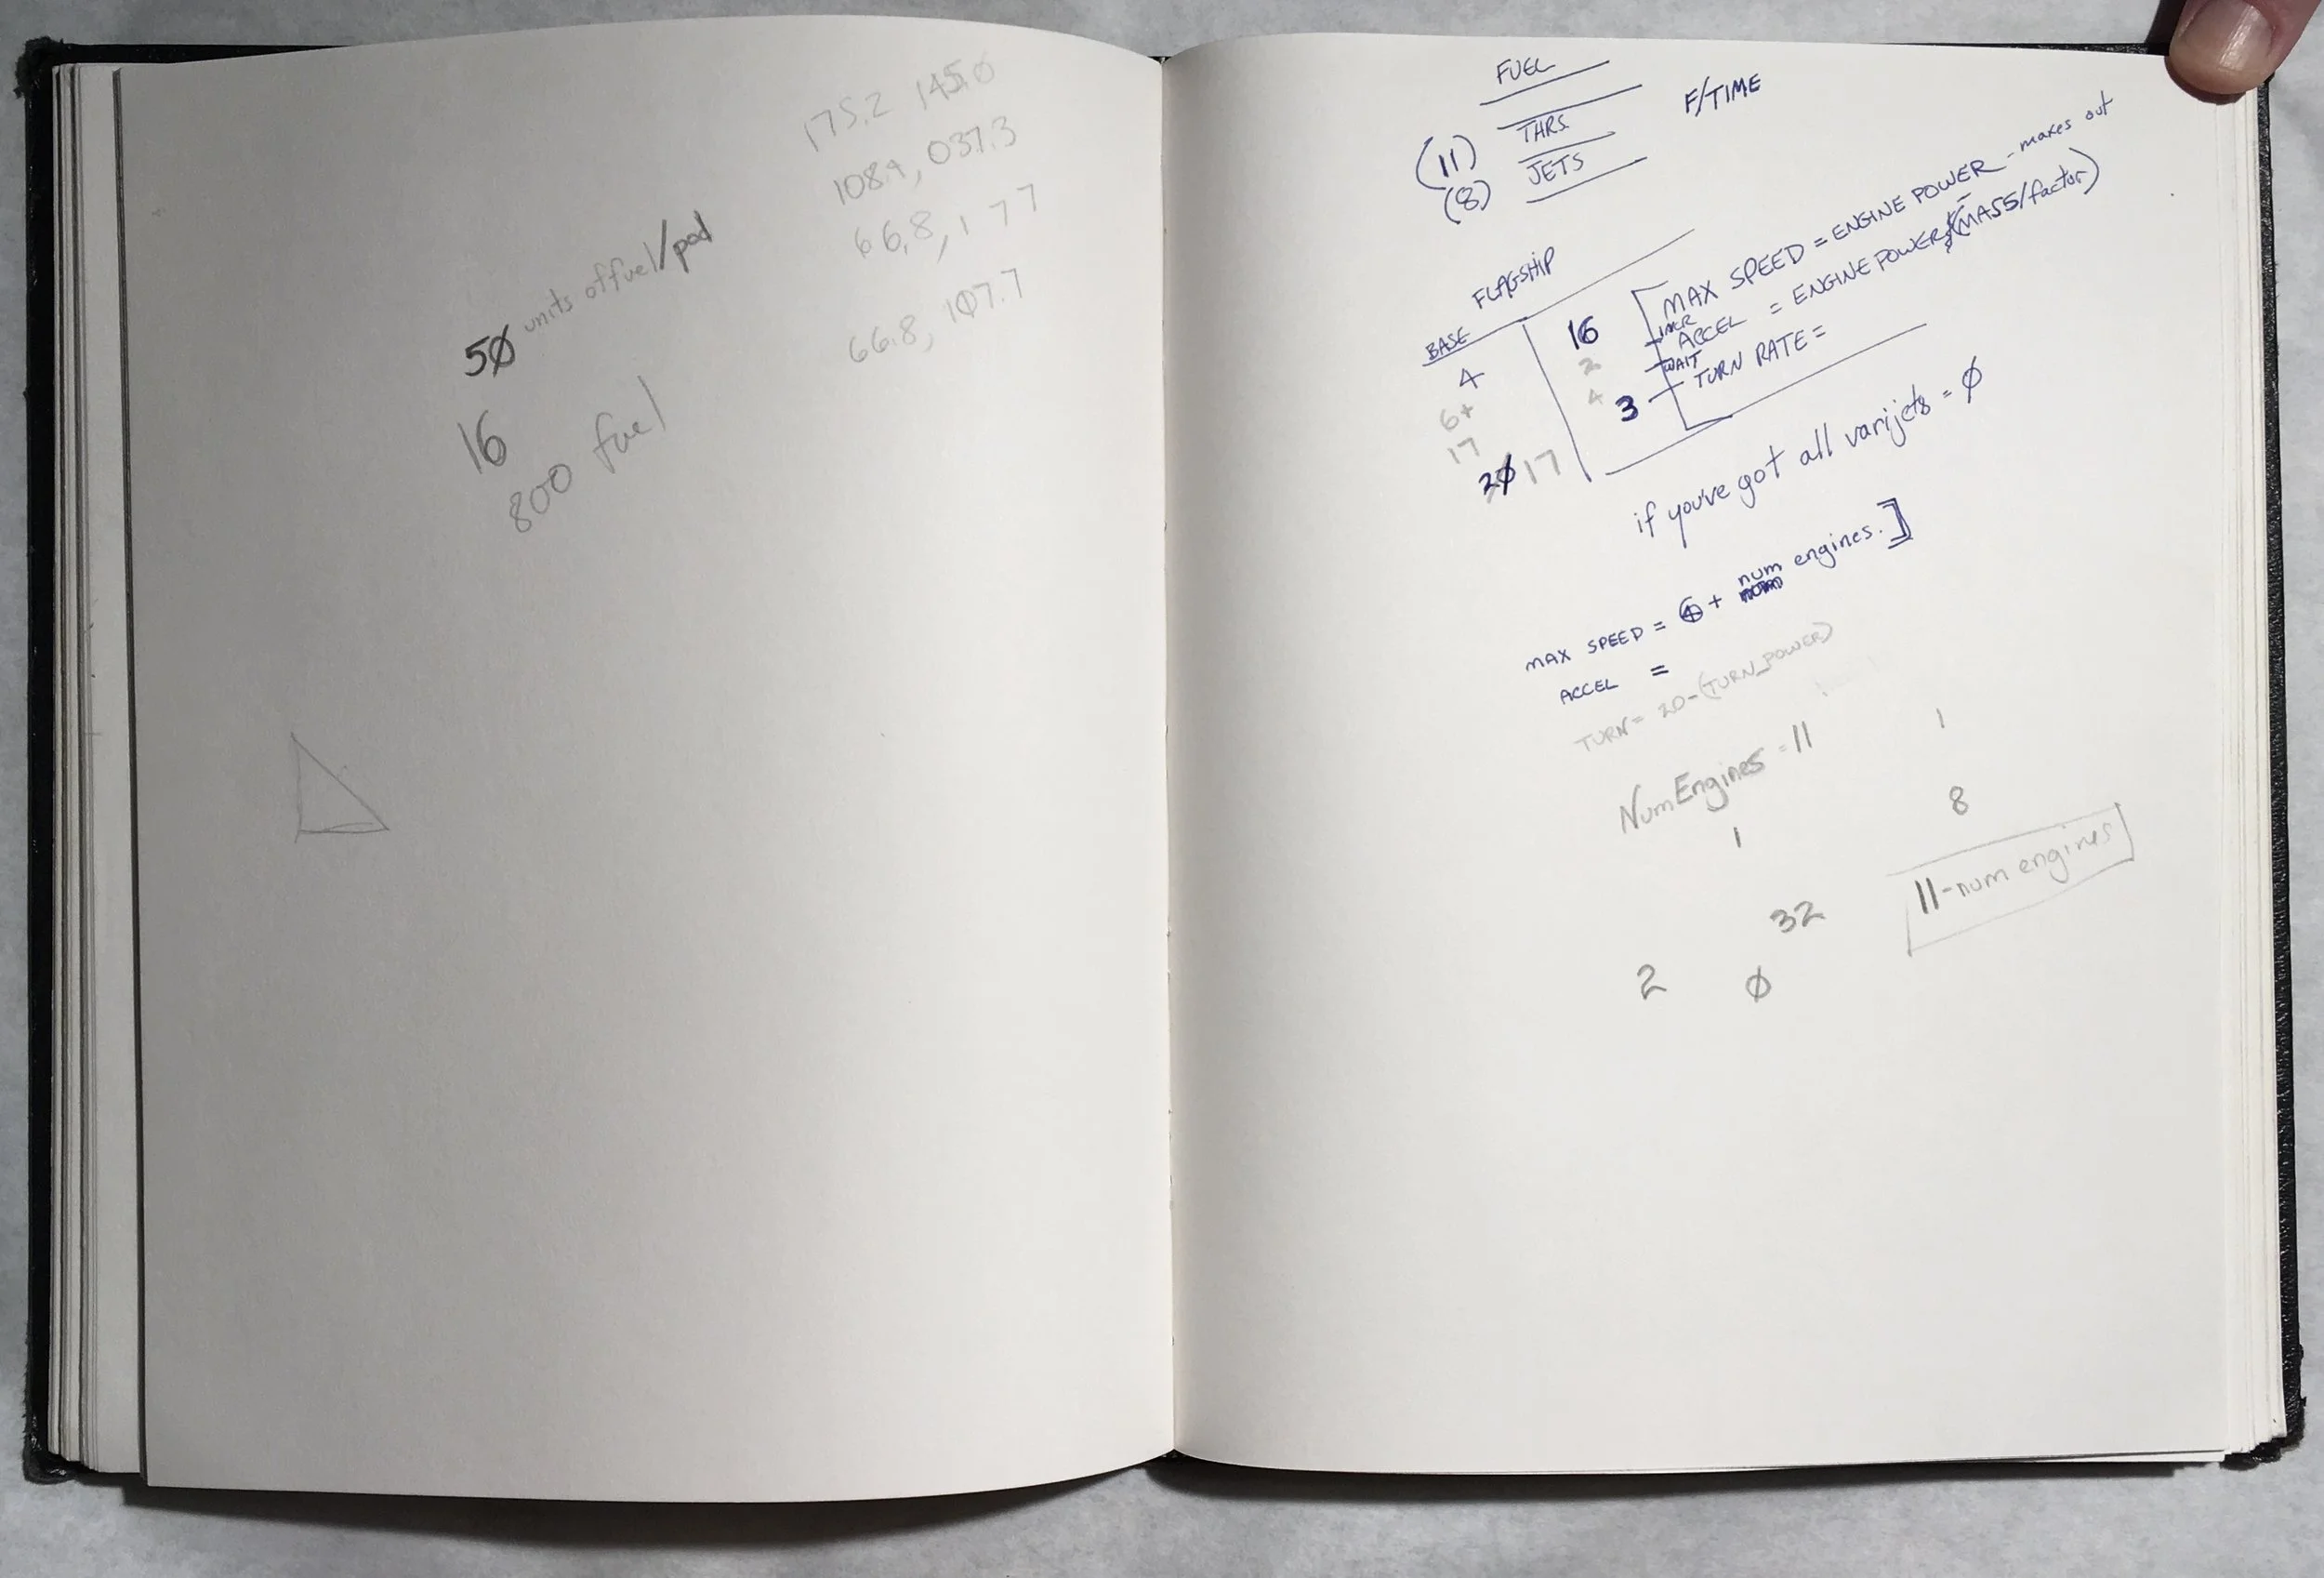 175.2 145.0
108.9, 037.3
66.8, 177
66.8, 107.7
50 units of fuel/pod
16
800 fuel
FUEL
F/TIME
(11) THRS.
(8) JETS
FLAGSHIP
BASE
4
6+
17
20 17
16 MAX SPEED = ENGINE POWER - makes out
INCR
2 ACCEL = ENGINE POWER (MASS/factor)
WAIT
4
3 TURN RATE =
if you've got all varijets = Ø
MAX SPEED = + num engines.]
ACCEL =
TURN = 20-(TURN_POWER)
NumEngines = 11
1
1
8
11-num engines
32
2 Ø